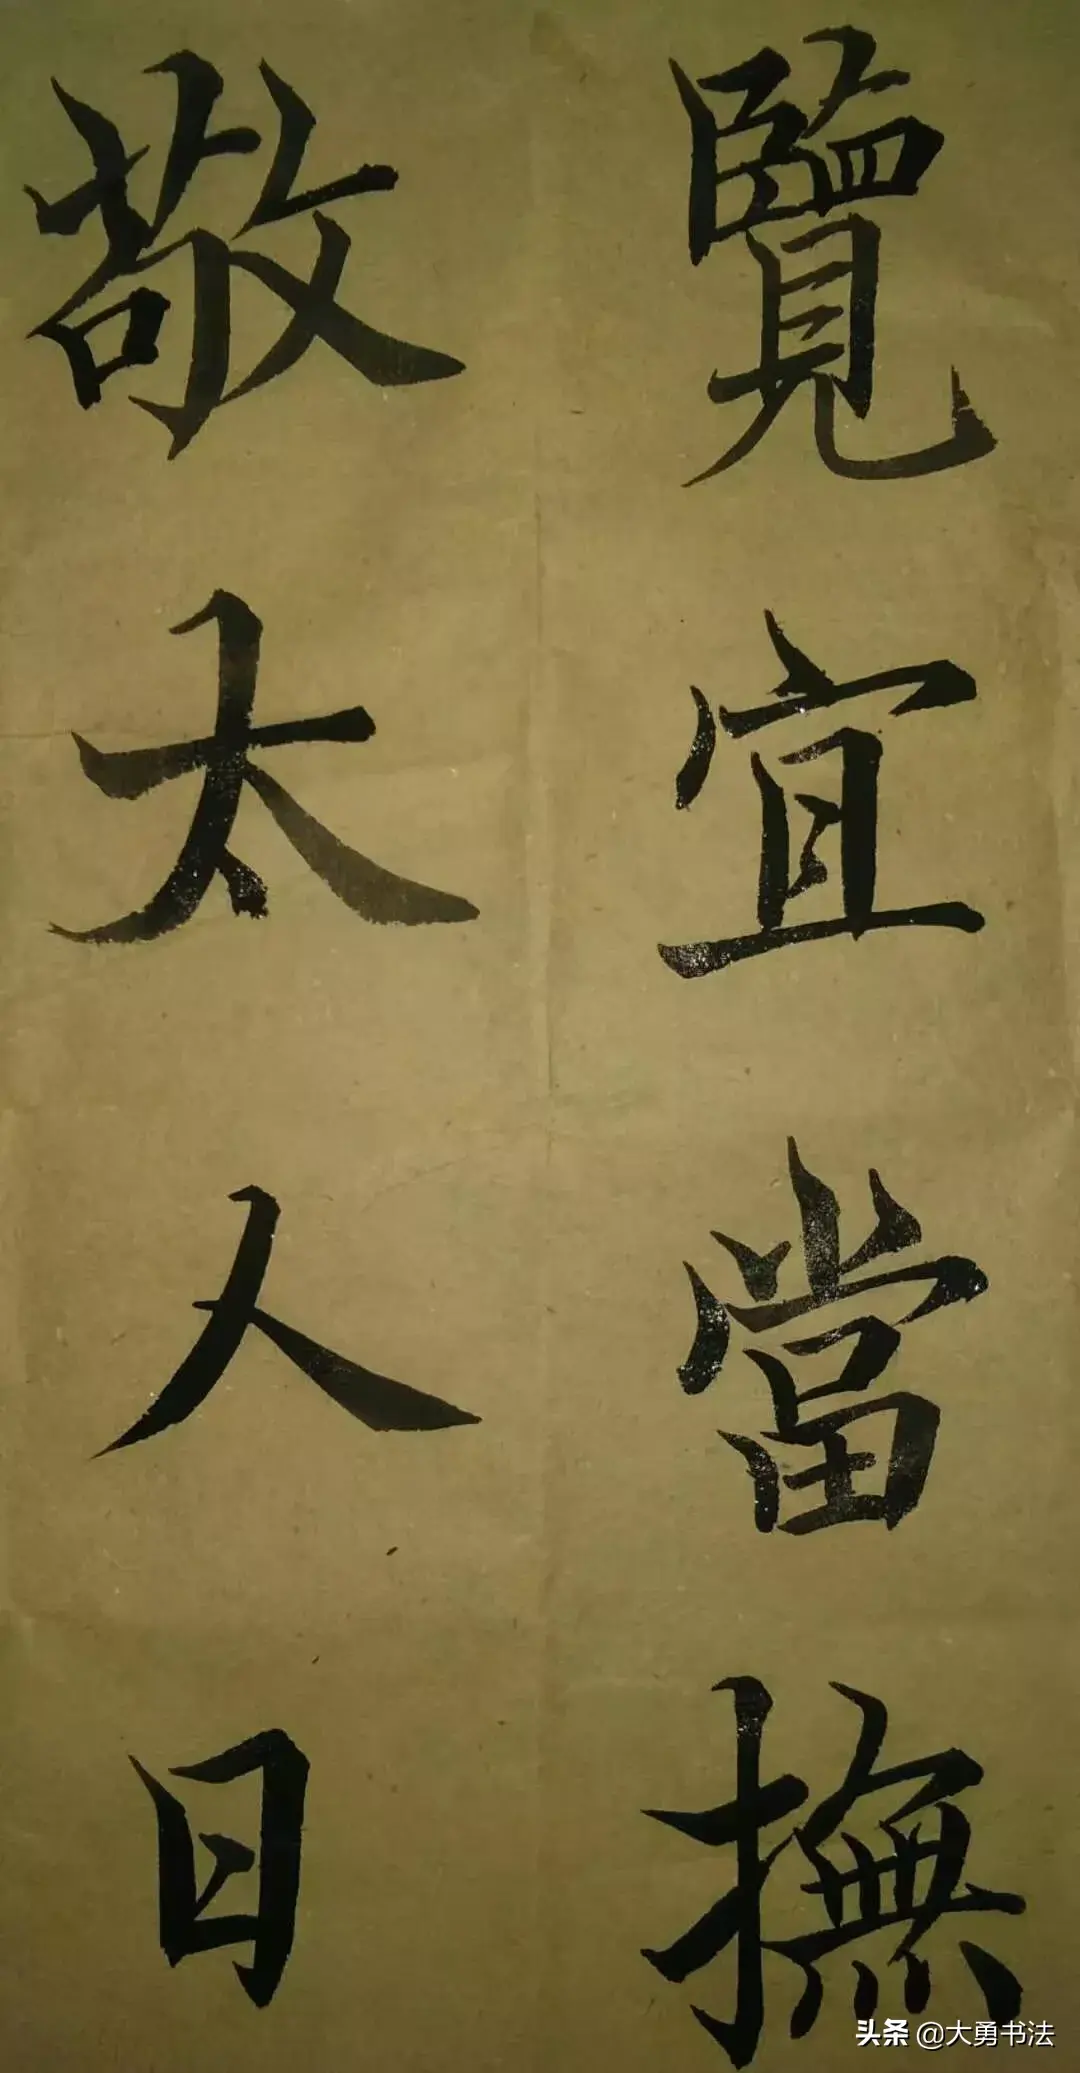 覽宜當撫
敬太人日
头条 @大勇书法